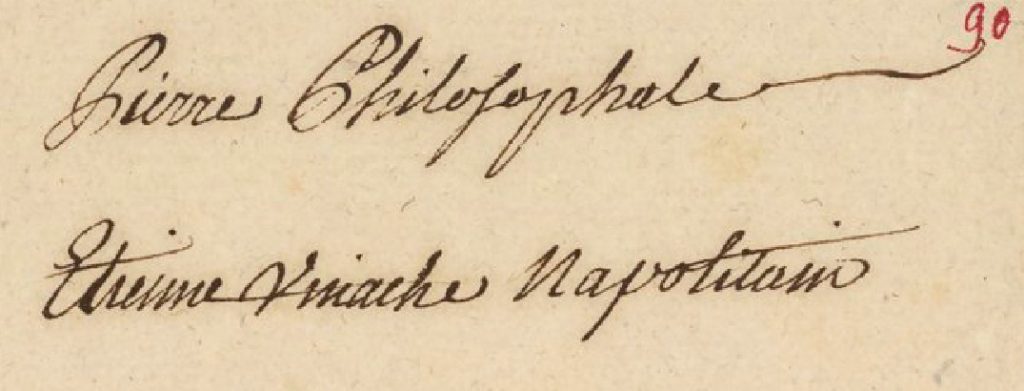 90
Pierre Philosophale
Etienne Vinache Napolitain